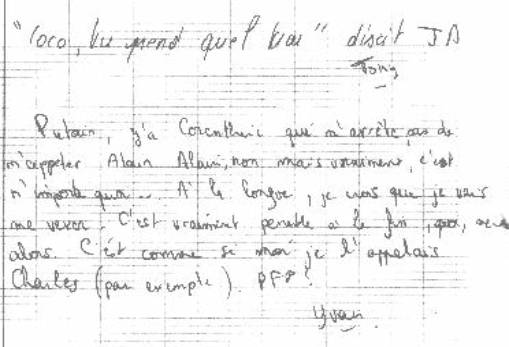 "Coco, tu prend quel bus" disait JD
Tony
Putain, y'a Corenthin qui m'arrête pas de
m'appeler Alain Alain, non mais vraiment, c'est
n'importe quoi... A la longue, je crois que je vais
me vexer. C'est vraiment penible a la fin, quoi,
alors. C'est comme si moi je l'appelais
Charles (par exemple). PFF!
Yvan